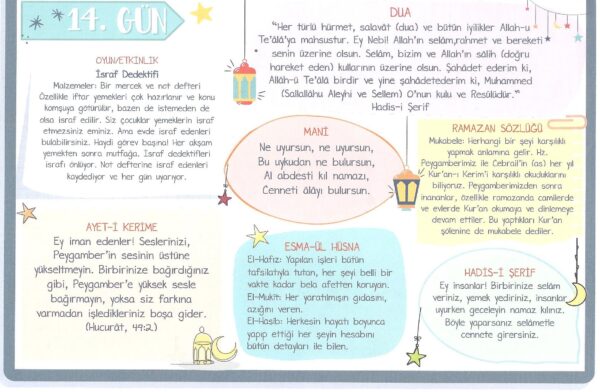 14. GÜN
OYUN/ETKİNLİK
İsraf Dedektifi
Malzemeler: Bir mercek ve not defteri
Özellikle iftar yemekleri çok hazırlanır ve konu
komşuya götürülür, bazen de istemeden de
olsa israf edilir. Siz çocuklar yemeklerin israf
etmezsiniz eminiz. Ama evde israf edenleri
bulabilirsiniz. Haydi görev başına! Her akşam
yemekten sonra mutfağa. İsraf dedektifleri
israfı önlüyor. Not defterine israf edenleri
kaydediyor ve her gün uyarıyor.
DUA
"Her türlü hürmet, salavât (dua) ve bütün iyilikler Allah-u
Te'âlâ'ya mahsustur. Ey Nebi! Allah'ın selâm,rahmet ve bereketi
senin üzerine olsun. Selâm, bizim ve Allah'ın sâlih (doğru
hareket eden) kullarının üzerine olsun. Şahâdet ederim ki,
Allâh-ü Te'âlâ birdir ve yine şahâdetederim ki, Muhammed
(Sallallâhu Aleyhi ve Sellem) O'nun kulu ve Resûlüdür."
Hadis-i Şerif
MANİ
Ne uyursun, ne uyursun,
Bu uykudan ne bulursun,
Al abdesti kıl namazı,
Cenneti âlâyı bulursun.
RAMAZAN SÖZLÜĞÜ
Mukabele: Herhangi bir şeyi karşılıklı
yapmak anlamına gelir. Hz.
Peygamberimiz ile Cebrail'in (as) her yıl
Kur'an-ı Kerim'i karşılıklı okuduklarını
biliyoruz. Peygamberimizden sonra
inananlar, özellikle ramazanda camilerde
ve evlerde Kur'an okumaya ve dinlemeye
devam ettiler. Bu yaptıkları Kur'an
şölenine de mukabele dediler.
AYET-İ KERİME
Ey iman edenler! Seslerinizi,
Peygamber'in sesinin üstüne
yükseltmeyin. Birbirinize bağırdığınız
gibi, Peygamber'e yüksek sesle
bağırmayın, yoksa siz farkına
varmadan işledikleriniz boşa gider.
(Hucurât, 49:2)
ESMA-ÜL HÜSNA
El-Hafiz: Yapılan işleri bütün
tafsilatıyla tutan, her şeyi belli bir
vakte kadar bela afetten koruyan.
El-Mukit: Her yaratılmışın gıdasını,
azığını veren.
El-Hasib: Herkesin hayatı boyunca
yapıp ettiği her şeyin hesabını
bütün detayları ile bilen.
HADİS-İ ŞERİF
Ey insanlar! Birbirinize selâm
veriniz, yemek yediriniz, insanlar
uyurken geceleyin namaz kılınız.
Böyle yaparsanız selâmetle
cennete girersiniz.